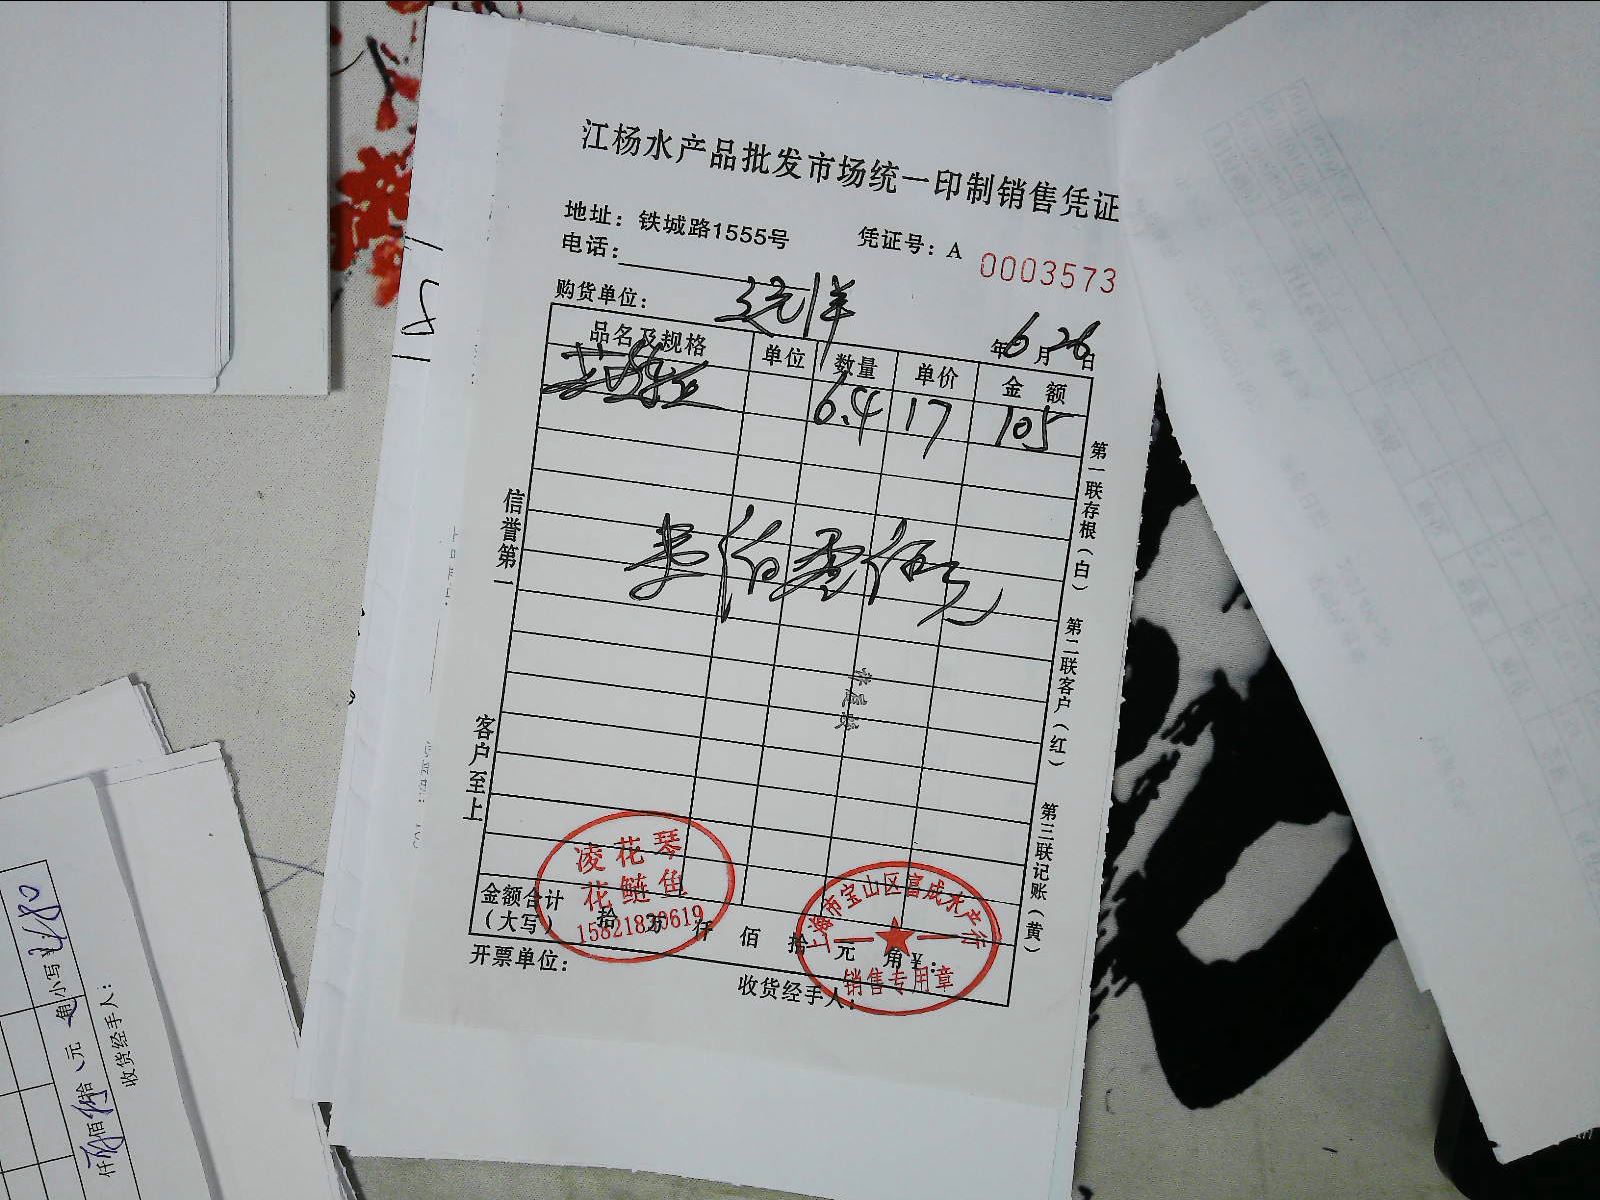 江杨水产品批发市场统一印制销售凭证
地址：铁城路1555号 凭证号：A 0003573
电话：
购货单位：
年6月26日
品名及规格 单位 数量 单价 金额
6.4 17 105
壹佰零伍元
信誉第一
客户至上
第一联存根（白）
第二联客户（红）
第三联记账（黄）
凌花琴
花鲢鱼
15821820619
上海市宝山区富成水产行
销售专用章
金额合计（大写） 拾 万 仟 佰 拾 元 角 ¥：
开票单位：
收货经手人：
8
仟 佰 拾 元 角 小写¥：480
收货经手人：